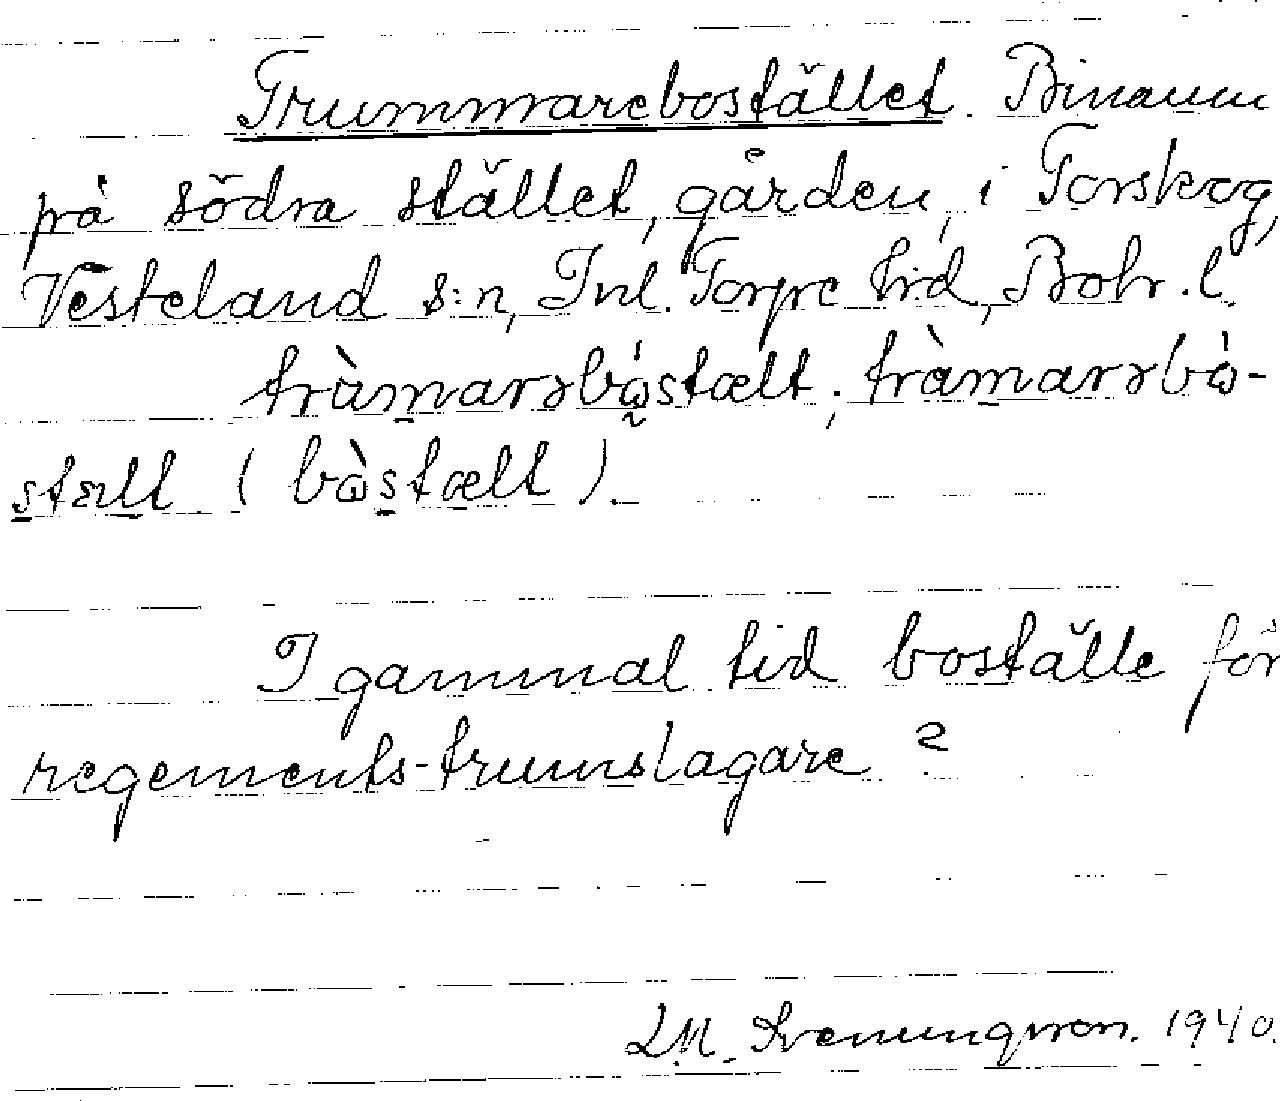 Trummarebostället. Binamn
på södra stället, gården, i Torskog,
Vesteland s:n, Inl. Torpe hrd, Bohr. l.
tràmarɘbὼstælt; tràmarɘbὼ-
stællt (bὼstælt).
I gammal tid boställe för
regements-trumslagare?
L.M. Svenungsson. 1940.